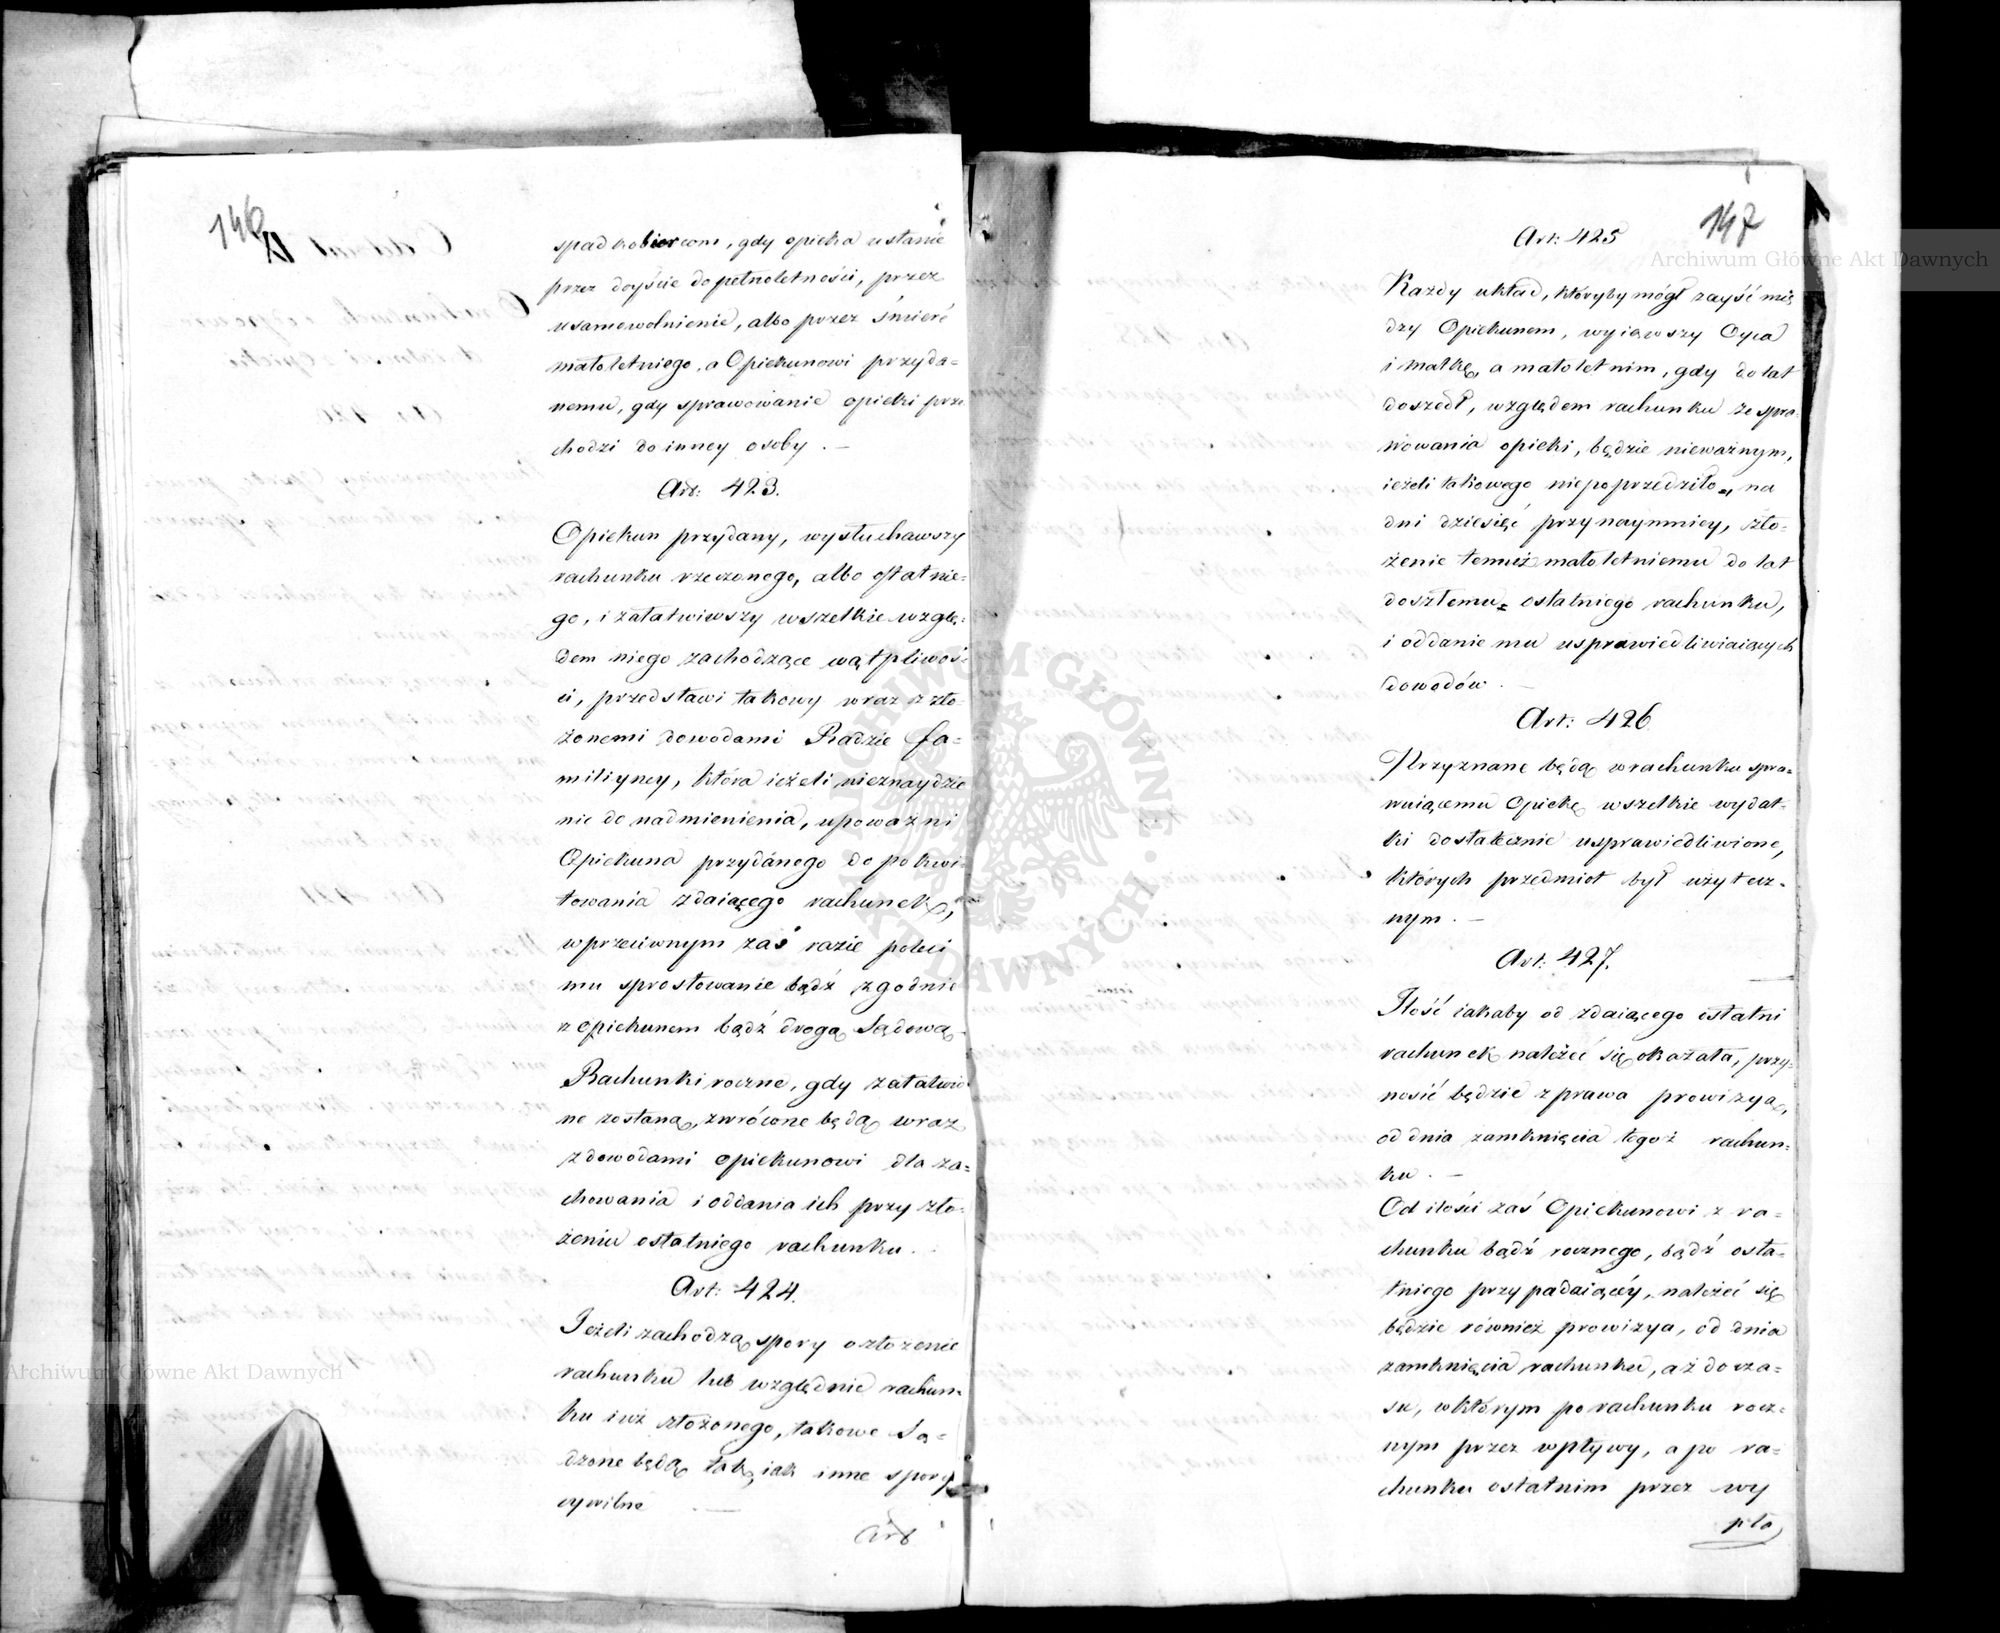 146
spadkobiercom, gdy opieka ustanie
przez doyście do pełnoletności, przez
usamowolnienie, albo przez śmierć
małoletniego, a Opiekunowi przyda=
nemu, gdy sprawowanie opieki prze
chodzi do inney osoby. —
Art: 423.
Opiekun przydany, wysłuchawszy
rachunku rzeczonego, albo ostatnie=
go, i załatwiwszy wszelkie wzglę=
dem niego zachodzące wątpliwoś=
ci, przedstawi takowy wraz z zło=
żonemi dowodami Radzie fa=
miliyney, która ieżeli nieznaydzie
nic do nadmienienia, upoważni
Opiekuna przydánego do pokwi=
towania zdaiącego rachunek,
wprzeciwnym zaś razie poleci
mu sprostowanie bądź zgodnie
z opiekunem bądź drogą Sądową.
Rachunki roczne, gdy załatwio
ne zostaną, zwrócone będą wraz
z dowodami opiekunowi dla za=
chowania i oddania ich przy zło=
żeniu ostatniego rachunku.
Art: 424.
Jeżeli zachodzą spory o złożenie
rachunku lub względnie rachun=
ku iuż złożonego, takowe Są=
dzone będą tak, iak inne spory
cywilne —
Art
147
Art: 425
Każdy układ, któryby mógł zayść mię
dzy Opiekunem, wyiąwszy Oyca
i matkę, a małoletnim, gdy do lat
doszedł, względem rachunku ze spra=
wowania opieki, będzie nieważnym,
ieżeli takowego niepoprzedziło, na
dni dziesięć przynaymniey, zło=
żenie temuż małoletniemu do lat
doszłemu, ostatniego rachunku,
i oddanie mu usprawiedliwiaiących
dowodów. —
Art: 426.
Przyznane będą w rachunku spra=
wuiącemu Opiekę wszelkie wydat=
ki dostatecznie usprawiedliwione,
których przedmiot był użytecz=
nym. —
Art: 427.
Ilość iakaby od zdaiącego ostatni
rachunek należeć się okazała, przy=
nosić będzie z prawa prowizyą,
od dnia zamknięcia tegoż rachun=
ku. —
Od ilości zaś Opiekunowi z ra=
chunku bądź rocznego, bądź osta=
tniego przypadaiącéy, należeć się
będzie również prowizya, od dnia
zamknięcia rachunku, aż do cza=
su, w którym po rachunku rocz=
nym przez wpływy, a po ra=
chunku ostatnim przez wy
pła
Archiwum Główne Akt Dawnych
Archiwum Główne Akt Dawnych
ARCHIWUM GŁÓWNE AKT DAWNYCH